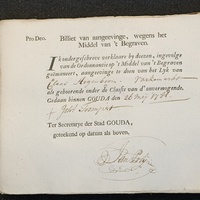 Pro Deo.
Billiet van aangeevinge, wegens het
Middel van 't Begraven.
Ik ondergeschreve verklaare by dezen, ingevolge
van de Ordonnantie op 't Middel van 't Begraven
geëmaneert, aangeevinge te doen van het Lyk van
Claas
als gehoorende onder de Classis van d' onvermogende.
Gedaan binnen GOUDA den 26 May
Ter Secretarye der Stad GOUDA,
geteekend op datum als boven.